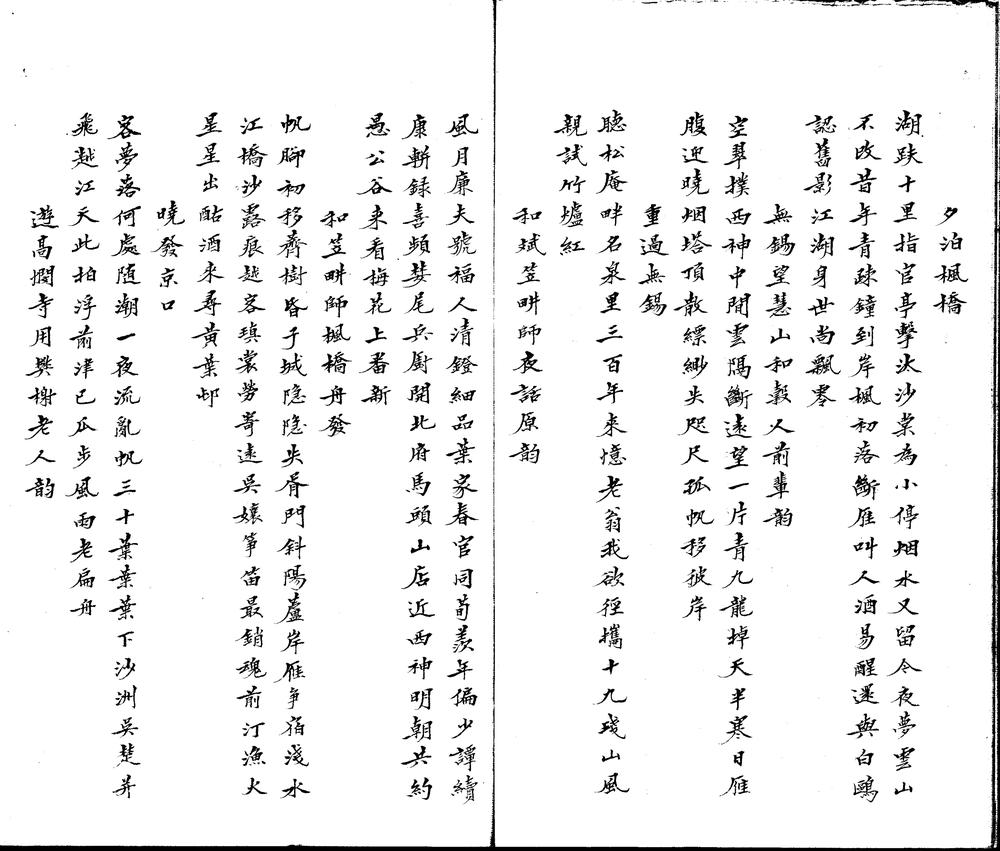 夕泊楓橋
湖趺十里指官亭擊汰沙棠為小停烟水又留今夜夢雲山
不改昔年青疎鐘到岸楓初落斷雁叫人酒易醒還與白鷗
認舊影江湖身世尚飄零
無錫望慧山和穀人前輩韵
空翠撲西神中間雲隔斷遠望一片青九龍掉天半寒日雁
腹迎曉烟塔頂散縹緲失咫尺孤帆移彼岸
重過無錫
聽松庵畔名泉里三百年來憶老翁我欲徑攜十九殘山風
親試竹爐紅
和斌笠畊師夜話原韵
風月廉夫號福人清鐙細品葉家春官同荀羨年偏少譚續
康駢録喜頻婪尾兵厨開北府馬頭山店近西神明朝共約
愚公谷來看梅花上番新
和笠畊師楓橋舟發
帆脚初移薺樹昏子城隱隱失胥門斜陽蘆岸雁爭宿淺水
江橋沙露痕越客瑱裳勞寄遠吳孃箏笛最銷魂前汀漁火
星星出酤酒來尋黃葉邨
曉發京口
客夢落何處随潮一夜流亂帆三十葉葉葉下沙洲吳楚并
飛越江天此拍浮前津已瓜步風雨老扁舟
遊高閔寺用樊榭老人韵